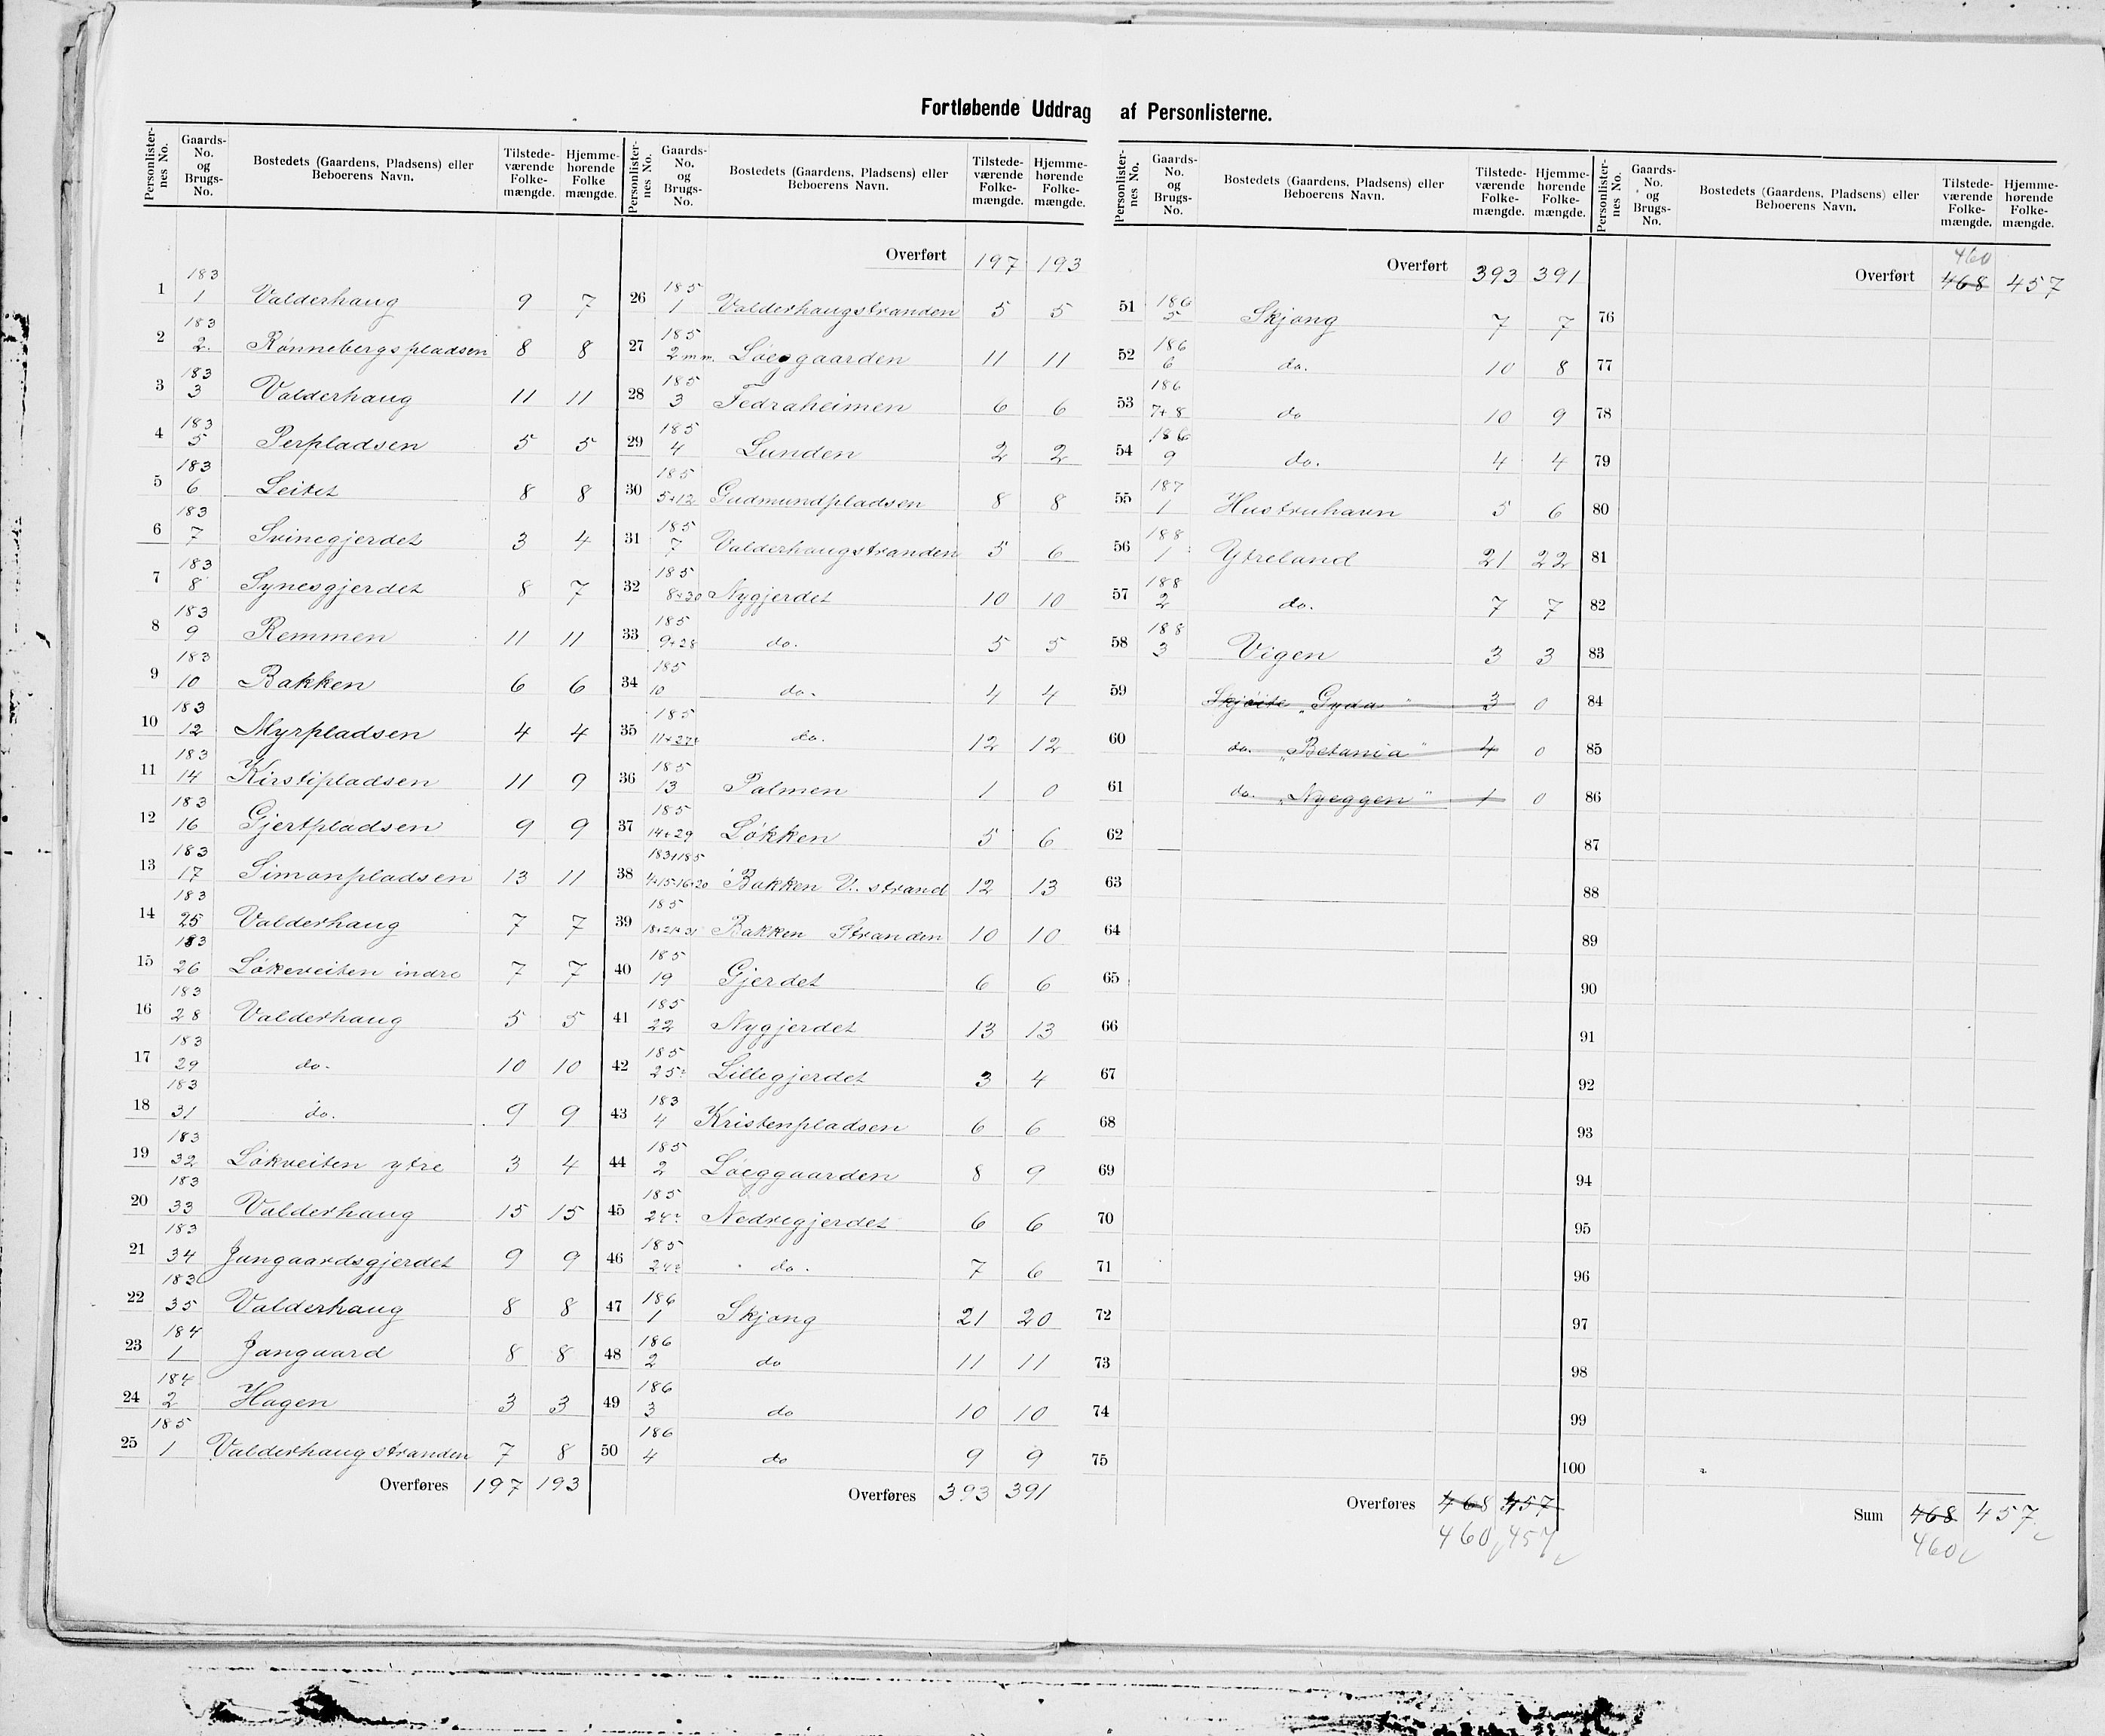 Fortløbende Uddrag af Personlisterne.
Personlister-nes No. Gaards-No. og Brugs-No. Bostedets (Gaardens, Pladsens) eller Beboerens Navn. Tilstede-værende Folke-mængde. Hjemme-hørende Folke mængde.
1 183 1 Valderhaug 9 7
2 183 2. Rønnebergspladsen 8 8
3 183 3 Valderhaug 11 11
4 183 5 Perpladsen 5 5
5 183 6 Leitet 8 8
6 183 7 Svinegjerdet 3 4
7 183 8 Synesgjerdet 8 7
8 183 9 Remmen 11 11
9 183 10 Bakken 6 6
10 183 12 Myrpladsen 4 4
11 183 14 Kirstipladsen 11 9
12 183 16 Gjertpladsen 9 9
13 183 17 Simonpladsen 13 11
14 183 25 Valderhaug 7 7
15 183 26 Løkeveiten indre 7 7
16 183 28 Valderhaug 5 5
17 183 29 do. 10 10
18 183 31 do. 9 9
19 183 32 Løkveiten ytre 3 4
20 183 33 Valderhaug 15 15
21 183 34 Jangaardsgjerdet 9 9
22 183 35 Valderhaug 8 8
23 184 1 Jangaard 8 8
24 184 2 Hagen 3 3
25 185 1 Valderhaugstranden 7 8
Overføres 197 193
Personlister-nes No. Gaards-No. og Brugs-No. Bostedets (Gaardens, Pladsens) eller Beboerens Navn. Tilstede-værende Folke-mængde. Hjemme-hørende Folke-mængde.
Overført 197 193
26 185 1 Valderhaugstranden 5 5
27 185 2 m.m. Løeggaarden 11 11
28 185 3 Fedraheimen 6 6
29 185 4 Lunden 2 2
30 185 5+12 Gudmundpladsen 8 8
31 185 7 Valderhaugstranden 5 6
32 185 8+30 Nygjerdet 10 10
33 185 9+28 do. 5 5
34 185 10 do. 4 4
35 185 do. 12 12
36 185 13 Palmen 1 0
37 185 14+29 Løkken 5 6
38 183+185 Bakken V. strand 12 13
39 185 Bakken Stranden 10 10
40 185 19 Gjerdet 6 6
41 185 22 Nygjerdet 13 13
42 185 25 Lillegjerdet 3 4
43 183 4 Kristenpladsen 6 6
44 185 2 Løeggaarden 8 9
45 185 24 Nedregjerdet 6 6
46 185 24 do. 7 6
47 186 1 Skjong 21 20
48 186 2 do 11 11
49 186 3 do 10 10
50 186 4 do 9 9
Overføres 393 391
Personlister-nes No. Gaards-No. og Brugs-No. Bostedets (Gaardens, Pladsens) eller Beboerens Navn. Tilstede-værende Folke-mængde. Hjemme-hørende Folke-mængde.
Overført 393 391
51 186 5 Skjong 7 7
52 186 6 do. 10 8
53 186 7+8 do 10 9
54 186 9 do. 4 4
55 187 1 Hustruhavn 5 6
56 188 1 Ytreland 21 22
57 188 2 do. 7 7
58 188 3 Vigen 3 3
59 Skjøite "Gyda" 3 0
60 do. "Betania" 4 0
61 do. "Nyeggen" 1 0
62
63
64
65
66
67
68
69
70
71
72
73
74
75
Overføres 468 457
460 457
Personlister-nes No. Gaards-No. og Brugs-No. Bostedets (Gaardens, Pladsens) eller Beboerens Navn. Tilstede-værende Folke-mængde. Hjemme-hørende Folke-mængde.
460
Overført 468 457
76
77
78
79
80
81
82
83
84
85
86
87
88
89
90
91
92
93
94
95
96
97
98
99
100
Sum 468 457
460